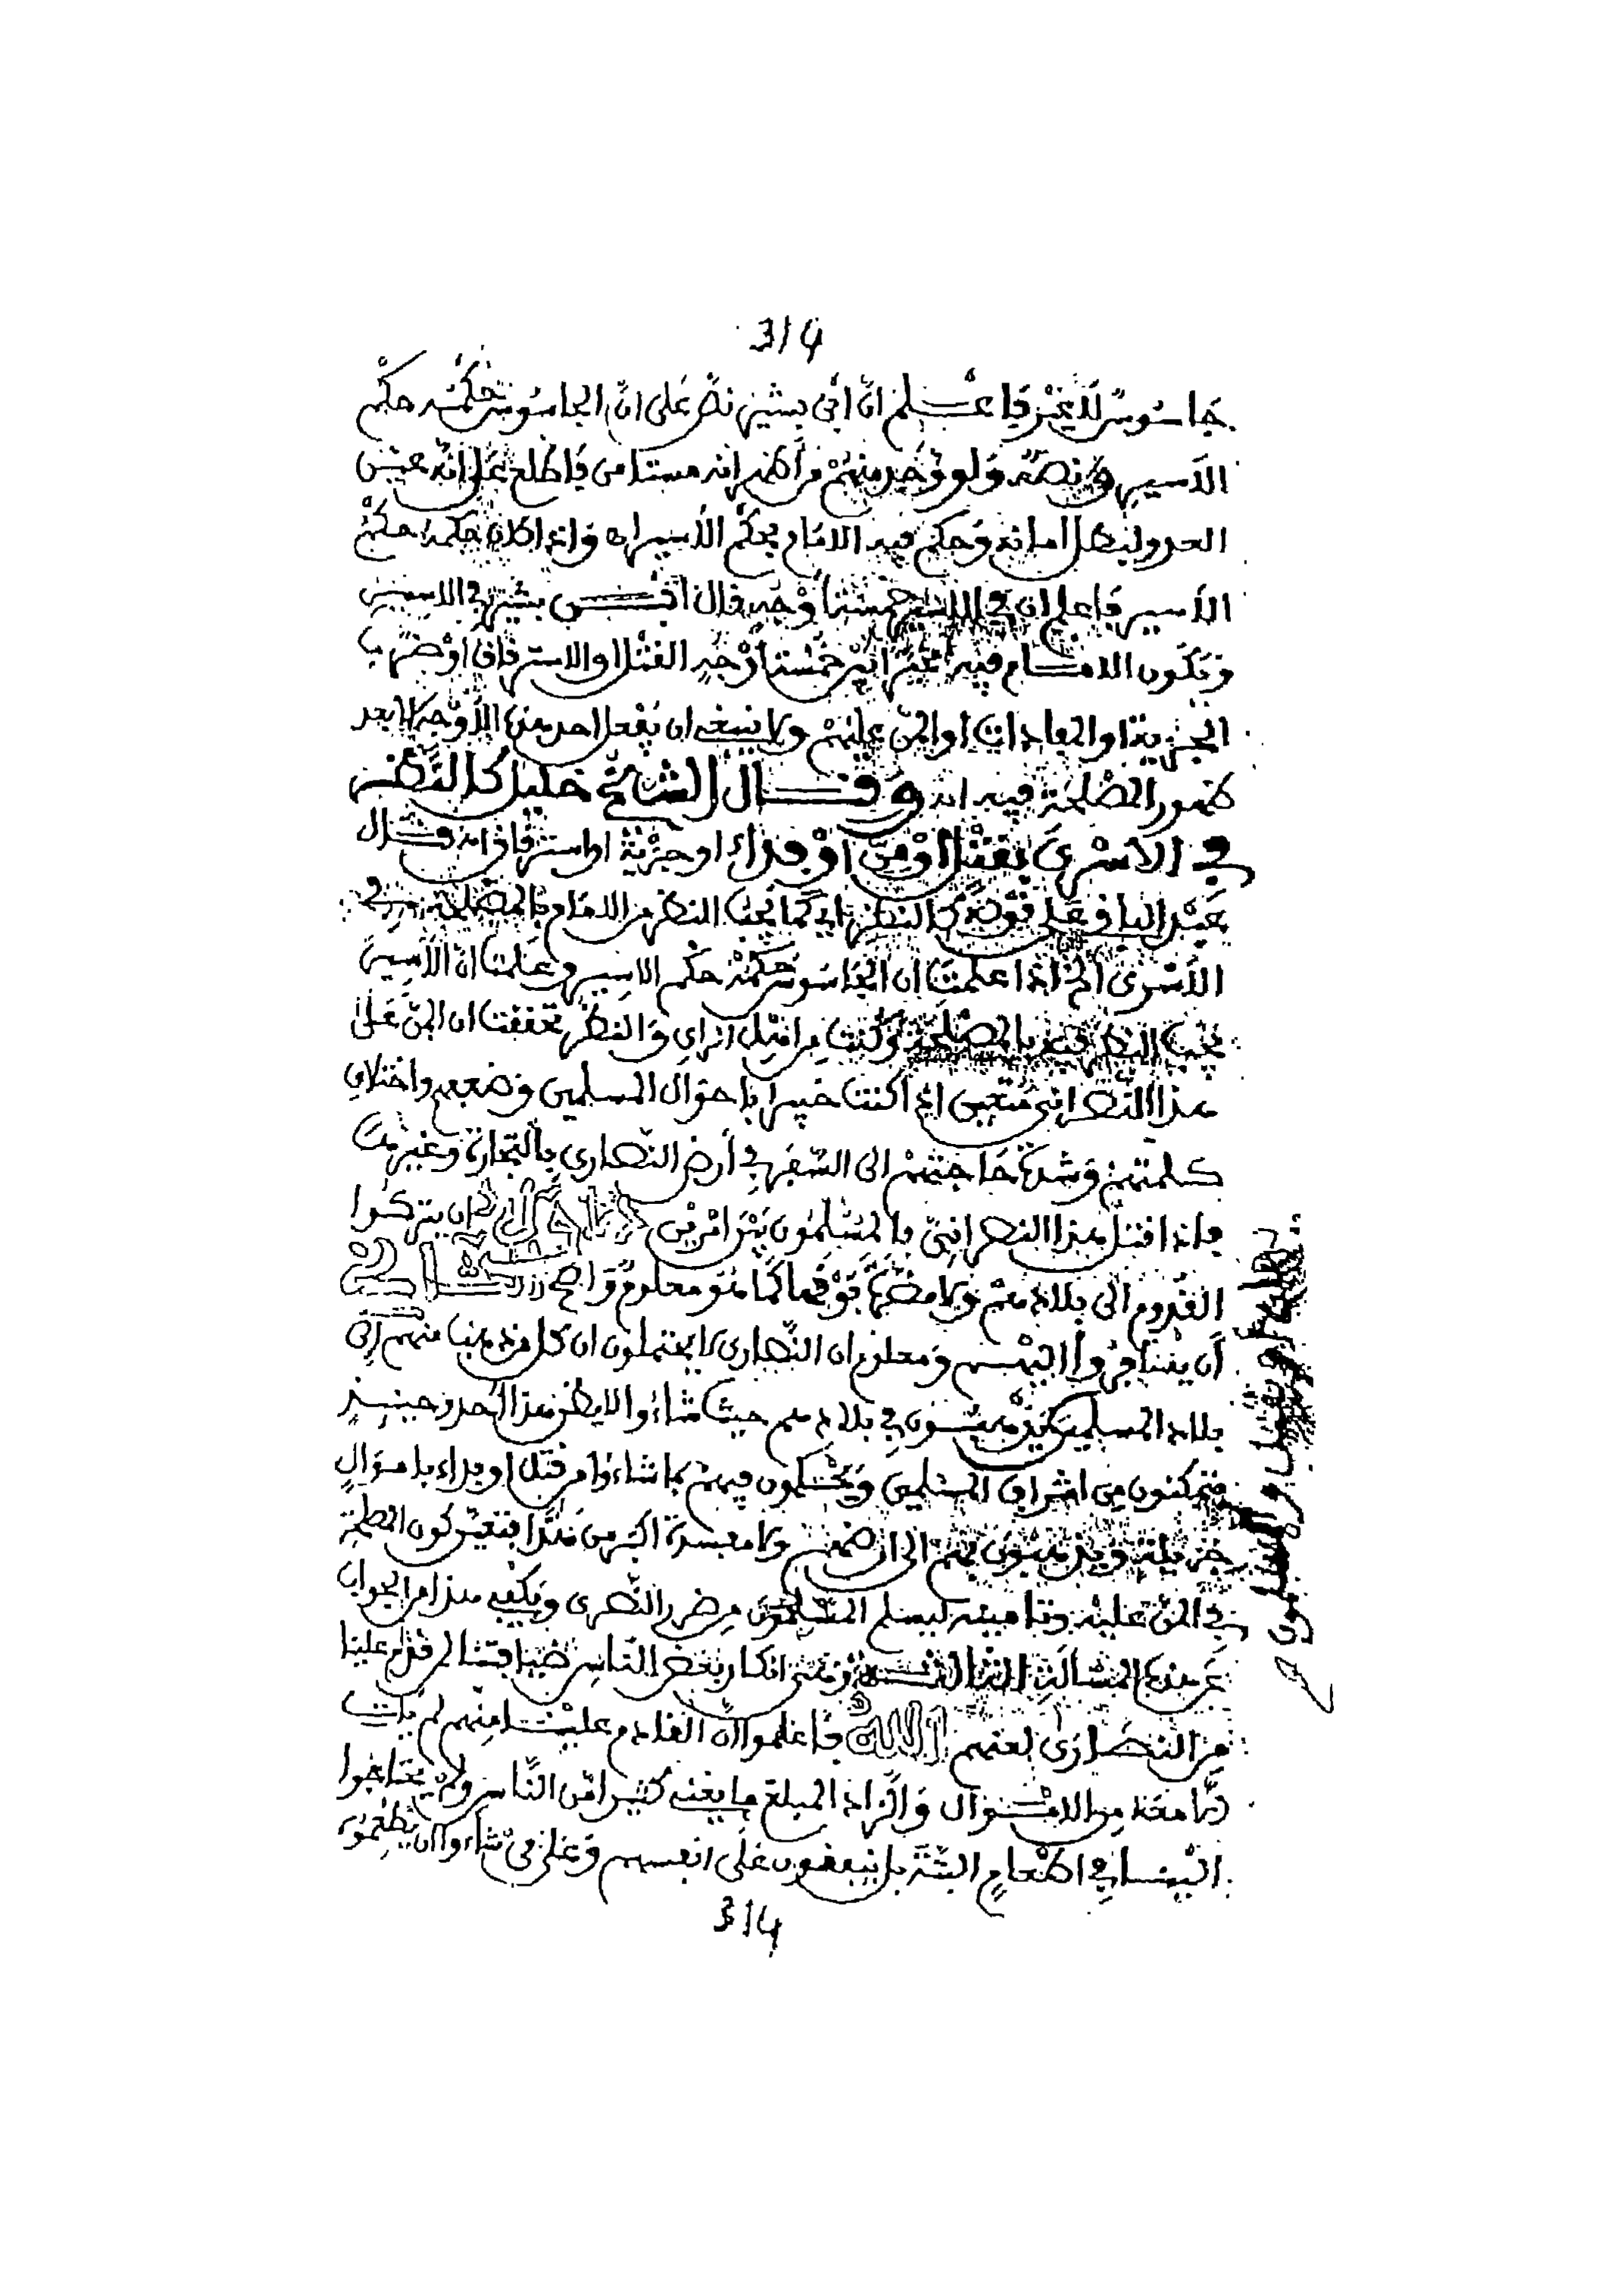 314
جاسوس لا غير فاعلم ان ابن بشير نص على ان الجاسوس حكمه حكم
الأسير ونصه ولو وجد منهم من اظهر انه مستامن فاطلع على انه عين
العدو لبطل امانه وحكم فيه الامام بحكم الأسير اه واذا كان حكمه حكم
الأسير فاعلم ان في الاسير خمسة أوجه قال ابن بشير في الاسير
ويكون الامام فيه مخيرا بين خمسة أوجه القتل او الاسترقاق او ضرب
الجزية او المفادات او المن عليهم ولا ينبغي ان يفعل احد هذه الأوجه الا بعد
ظهور المصلحة فيه اه وقال الشيخ خليل كالنظر
في الأسرى بقتل او من او فداء او جزية او استرقاق اه قال
عبد الباقي على قوله كالنظر اي كما يجب النظر من الامام بالمصلحة في
الأسرى الخ اذا علمت ان الجاسوس حكمه حكم الاسير وعلمت ان الأسير
يجب النظر فيه بالمصلحة وكنت من اهل الراي والنظر تحققت ان المن على
هذا النصراني متعين اذا كنت خبيرا باحوال المسلمين وضعفهم واختلاف
كلمتهم وشدة حاجتهم الى السفر في أرض النصارى بالتجارة وغيرها
فاذا قتل هذا النصراني فالمسلمون بين امرين ان يتركوا
القدوم الى بلادهم ولا مضرة فوقها كما هو معلوم واضح
أن يسافروا اليهم ومعلوم ان النصارى لا يحتملون ان كل من ذهب منهم الى
بلاد المسلمين يذهبون في بلادهم حيث شاءوا الا يظهر هذا العدو حينئذ
فيتمكنون من اشراف المسلمين ويحكمون فيهم بما شاءوا من قتل او فداء باموال
جزيلة ويذهبون بهم الى ارضهم ولا مفسدة اكبر من هذا فتعين كون المصلحة
في المن عليه وتامينه ليسلم المسلمون من ضرر النصرى ويكفي هذا من الجواب
عن هذه المسألة الثالثة وهي انكار بعض الناس ضيافتنا لمن قدم علينا
من النصارى لعنهم الله فاعلموا ان القادم علينا منهم لم يات
الا معه من الاموال والزاد المبلغ ما يغني كثيرا من الناس ولا يحتاجوا
الينا في الطعام البتة بل ينفقون على انفسهم وعلى من شاءوا ان يطعموه
314